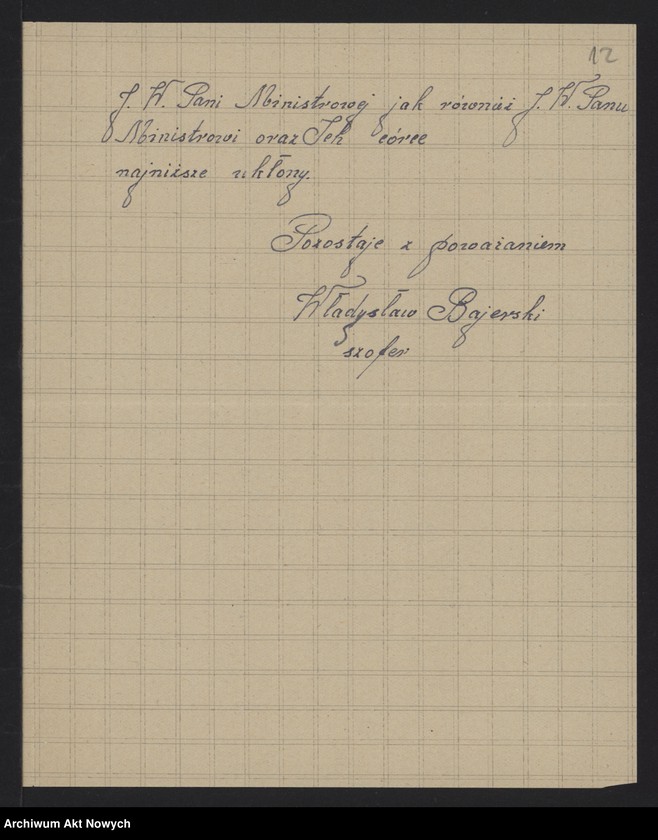 12
J. W. Pani Ministrowej jak również J. W. Panu
Ministrowi oraz Ich córce
najniższe ukłony.
Pozostaje z poważaniem
Władysław Bajerski
szofer
Archiwum Akt Nowych